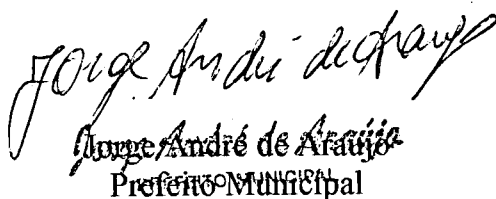 Jorge André de Araujo
Jorge André de Araújo
Prefeito Municipal